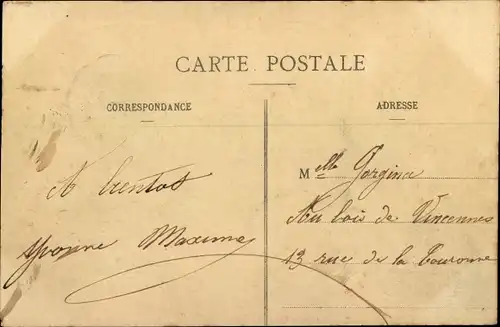 CARTE POSTALE
CORRESPONDANCE
A bientôt
Yvonne Maxime
ADRESSE
Melle Gorgina
Au bois de Vincennes
13 rue de la Couronne